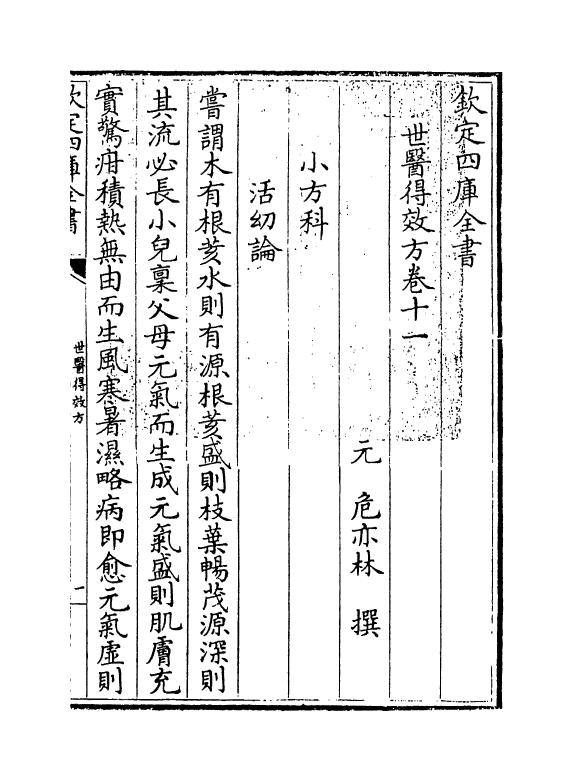 欽定四庫全書
世醫得效方卷十一
元　危亦林　撰
小方科
活幼論
嘗謂木有根荄水則有源根荄盛則枝葉暢茂源深則
其流必長小兒稟父母元氣而生成元氣盛則肌膚充
實驚疳積熱無由而生風寒暑濕略病即愈元氣虛則
欽定四庫全書
世醫得效方
一